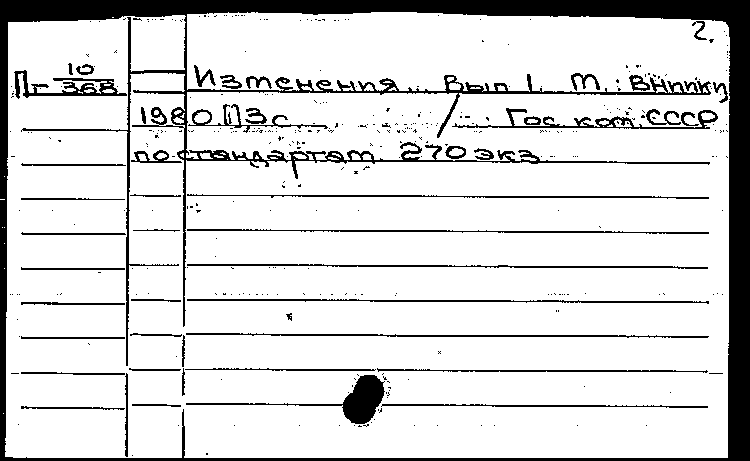 2.
Пг 10/368 Изменения... Вып 1. М.: ВНИИКИ
1980. 13 с. / Гос. ком. СССР
по стандартам. 270 экз